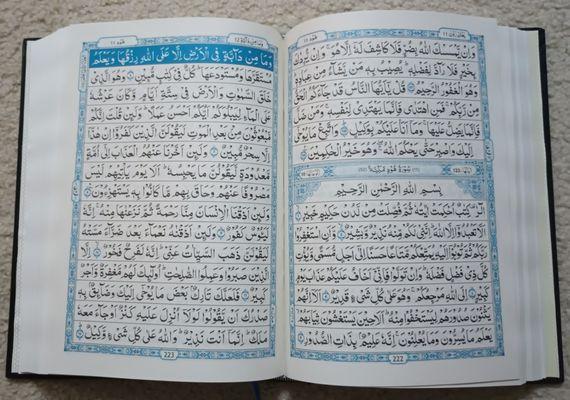 هُوْد ١١
وَاِنْ يَّمْسَسْكَ اللّٰهُ بِضُرٍّ فَلَا كَاشِفَ لَهٗۤ اِلَّا هُوَ ۚ وَاِنْ يُّرِدْكَ
بِخَيْرٍ فَلَا رَآدَّ لِفَضْلِهٖ ؕ يُصِيْبُ بِهٖ مَنْ يَّشَآءُ مِنْ عِبَادِهٖ ؕ
وَهُوَ الْغَفُوْرُ الرَّحِيْمُ قُلْ يٰۤاَيُّهَا النَّاسُ قَدْ جَآءَكُمُ الْحَقُّ
مِنْ رَّبِّكُمْ ۚ فَمَنِ اهْتَدٰى فَاِنَّمَا يَهْتَدِيْ لِنَفْسِهٖ ۚ وَمَنْ ضَلَّ
فَاِنَّمَا يَضِلُّ عَلَيْهَا ۚ وَمَاۤ اَنَا عَلَيْكُمْ بِوَكِيْلٍ وَاتَّبِعْ مَا يُوْحٰۤى
اِلَيْكَ وَاصْبِرْ حَتّٰى يَحْكُمَ اللّٰهُ ۚ وَهُوَ خَيْرُ الْحٰكِمِيْنَ
سُوْرَةُ هُوْدٍ مَّكِّيَّةٌ
بِسْمِ اللّٰهِ الرَّحْمٰنِ الرَّحِيْمِ
الٓرٰ ۫ كِتٰبٌ اُحْكِمَتْ اٰيٰتُهٗ ثُمَّ فُصِّلَتْ مِنْ لَّدُنْ حَكِيْمٍ خَبِيْرٍ
اَلَّا تَعْبُدُوْۤا اِلَّا اللّٰهَ ؕ اِنَّنِيْ لَكُمْ مِّنْهُ نَذِيْرٌ وَّبَشِيْرٌ وَّاَنِ اسْتَغْفِرُوْا
رَبَّكُمْ ثُمَّ تُوْبُوْۤا اِلَيْهِ يُمَتِّعْكُمْ مَّتَاعًا حَسَنًا اِلٰۤى اَجَلٍ مُّسَمًّى وَّيُؤْتِ
كُلَّ ذِيْ فَضْلٍ فَضْلَهٗ ؕ وَاِنْ تَوَلَّوْا فَاِنِّيْۤ اَخَافُ عَلَيْكُمْ عَذَابَ يَوْمٍ
كَبِيْرٍ اِلَى اللّٰهِ مَرْجِعُكُمْ ۚ وَهُوَ عَلٰى كُلِّ شَيْءٍ قَدِيْرٌ اَلَاۤ اِنَّهُمْ
يَثْنُوْنَ صُدُوْرَهُمْ لِيَسْتَخْفُوْا مِنْهُ ؕ اَلَا حِيْنَ يَسْتَغْشُوْنَ ثِيَابَهُمْ ۙ
يَعْلَمُ مَا يُسِرُّوْنَ وَمَا يُعْلِنُوْنَ ۚ اِنَّهٗ عَلِيْمٌۢ بِذَاتِ الصُّدُوْرِ
222
هُوْد ١١
وَمَا مِنْ دَآبَّةٍ فِي الْاَرْضِ اِلَّا عَلَى اللّٰهِ رِزْقُهَا وَيَعْلَمُ
مُسْتَقَرَّهَا وَمُسْتَوْدَعَهَا ؕ كُلٌّ فِيْ كِتٰبٍ مُّبِيْنٍ وَهُوَ الَّذِيْ
خَلَقَ السَّمٰوٰتِ وَالْاَرْضَ فِيْ سِتَّةِ اَيَّامٍ وَّكَانَ عَرْشُهٗ
عَلَى الْمَآءِ لِيَبْلُوَكُمْ اَيُّكُمْ اَحْسَنُ عَمَلًا ؕ وَلَئِنْ قُلْتَ اِنَّكُمْ
مَّبْعُوْثُوْنَ مِنْۢ بَعْدِ الْمَوْتِ لَيَقُوْلَنَّ الَّذِيْنَ كَفَرُوْۤا اِنْ هٰذَاۤ
اِلَّا سِحْرٌ مُّبِيْنٌ وَلَئِنْ اَخَّرْنَا عَنْهُمُ الْعَذَابَ اِلٰۤى اُمَّةٍ
مَّعْدُوْدَةٍ لَّيَقُوْلُنَّ مَا يَحْبِسُهٗ ؕ اَلَا يَوْمَ يَاْتِيْهِمْ لَيْسَ
مَصْرُوْفًا عَنْهُمْ وَحَاقَ بِهِمْ مَّا كَانُوْا بِهٖ يَسْتَهْزِءُوْنَ
وَلَئِنْ اَذَقْنَا الْاِنْسَانَ مِنَّا رَحْمَةً ثُمَّ نَزَعْنٰهَا مِنْهُ ۚ اِنَّهٗ
لَيَئُوْسٌ كَفُوْرٌ وَلَئِنْ اَذَقْنٰهُ نَعْمَآءَ بَعْدَ ضَرَّآءَ مَسَّتْهُ
لَيَقُوْلَنَّ ذَهَبَ السَّيِّاٰتُ عَنِّيْ ؕ اِنَّهٗ لَفَرِحٌ فَخُوْرٌ اِلَّا
الَّذِيْنَ صَبَرُوْا وَعَمِلُوا الصّٰلِحٰتِ ؕ اُولٰٓئِكَ لَهُمْ مَّغْفِرَةٌ وَّاَجْرٌ
كَبِيْرٌ فَلَعَلَّكَ تَارِكٌۢ بَعْضَ مَا يُوْحٰۤى اِلَيْكَ وَضَآئِقٌۢ بِهٖ
صَدْرُكَ اَنْ يَّقُوْلُوْا لَوْلَاۤ اُنْزِلَ عَلَيْهِ كَنْزٌ اَوْ جَآءَ مَعَهٗ
مَلَكٌ ؕ اِنَّمَاۤ اَنْتَ نَذِيْرٌ ؕ وَاللّٰهُ عَلٰى كُلِّ شَيْءٍ وَّكِيْلٌ
223